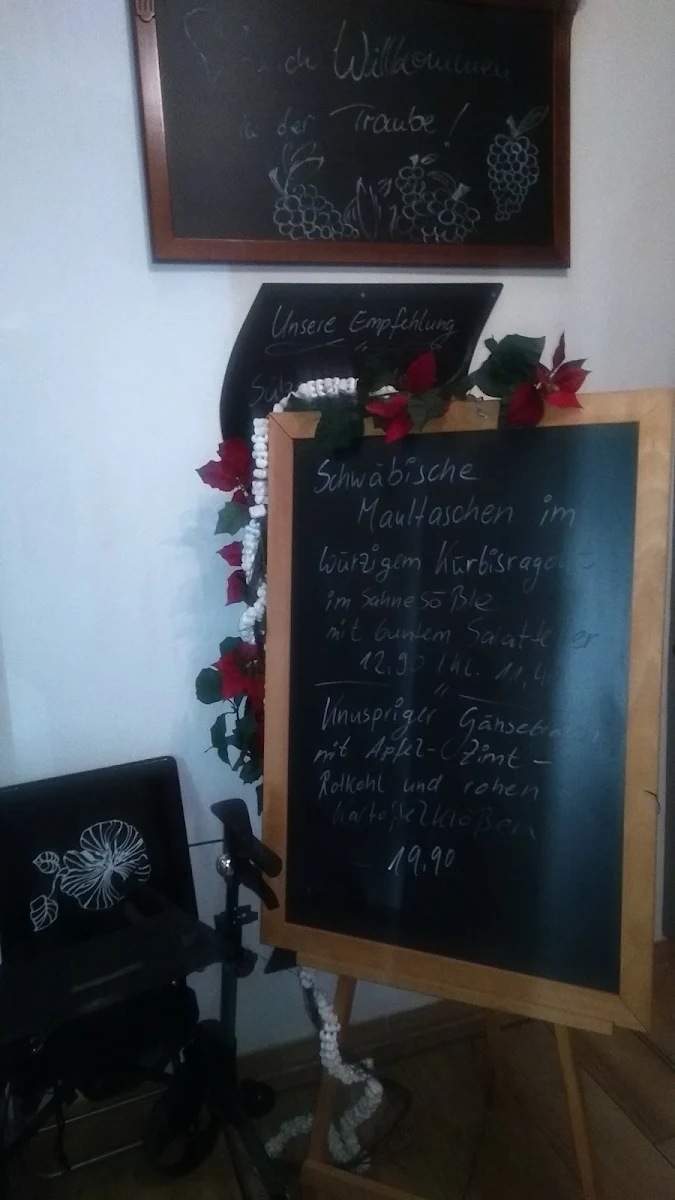 Willkommen
in der Traube!
Unsere Empfehlung
Schwäbische
Maultaschen im
würzigem Kürbisragout
im Sahnesößle
mit buntem Salatteller
12,90 / kl. 11,40
Knuspriger Gänsebraten
mit Apfel-Zimt-
Rotkohl und rohen
Kartoffelklößen
19,90